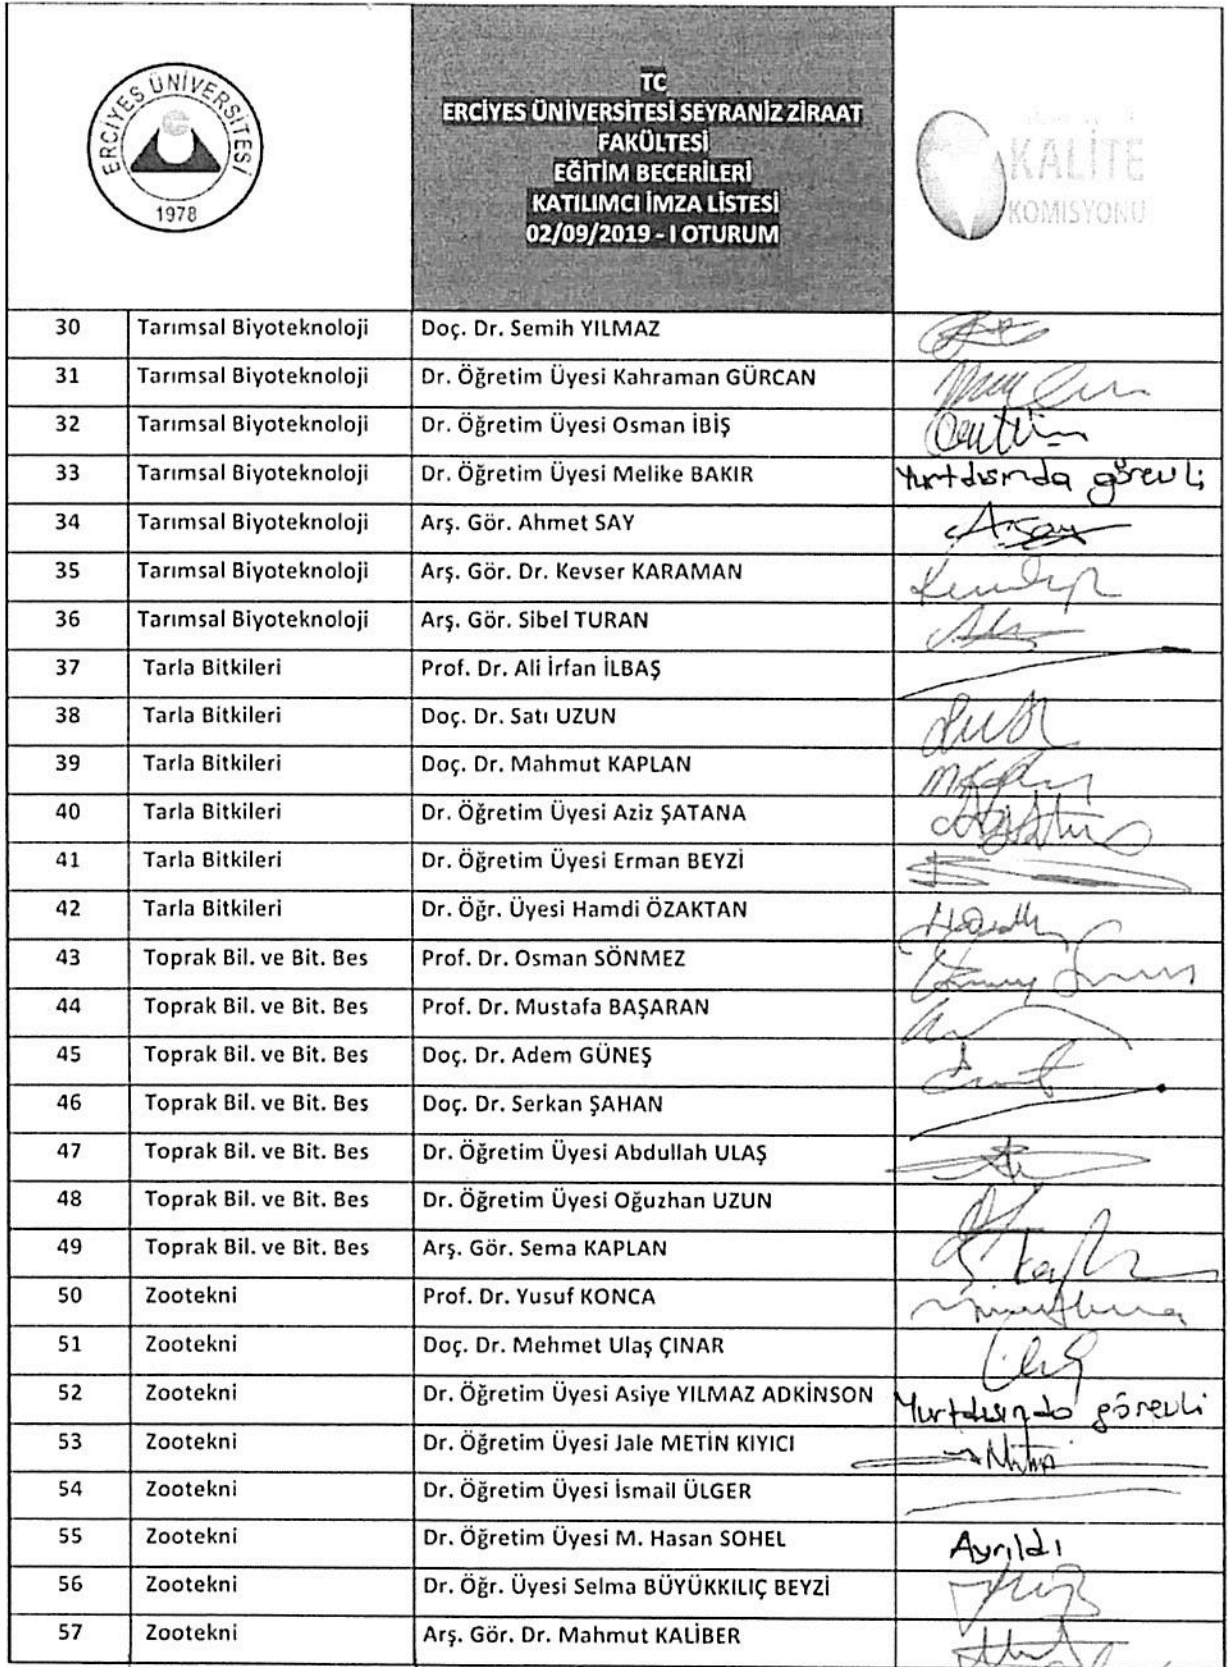 ERCİYES ÜNİVERSİTESİ
1978
TC
ERCİYES ÜNİVERSİTESİ SEYRANİZ ZİRAAT
FAKÜLTESİ
EĞİTİM BECERİLERİ
KATILIMCI İMZA LİSTESİ
02/09/2019 - I OTURUM
KALİTE
KOMİSYONU
30 Tarımsal Biyoteknoloji Doç. Dr. Semih YILMAZ
31 Tarımsal Biyoteknoloji Dr. Öğretim Üyesi Kahraman GÜRCAN
32 Tarımsal Biyoteknoloji Dr. Öğretim Üyesi Osman İBİŞ
33 Tarımsal Biyoteknoloji Dr. Öğretim Üyesi Melike BAKIR Yurtdışında görevli
34 Tarımsal Biyoteknoloji Arş. Gör. Ahmet SAY
35 Tarımsal Biyoteknoloji Arş. Gör. Dr. Kevser KARAMAN
36 Tarımsal Biyoteknoloji Arş. Gör. Sibel TURAN
37 Tarla Bitkileri Prof. Dr. Ali İrfan İLBAŞ
38 Tarla Bitkileri Doç. Dr. Satı UZUN
39 Tarla Bitkileri Doç. Dr. Mahmut KAPLAN
40 Tarla Bitkileri Dr. Öğretim Üyesi Aziz ŞATANA
41 Tarla Bitkileri Dr. Öğretim Üyesi Erman BEYZİ
42 Tarla Bitkileri Dr. Öğr. Üyesi Hamdi ÖZAKTAN
43 Toprak Bil. ve Bit. Bes Prof. Dr. Osman SÖNMEZ
44 Toprak Bil. ve Bit. Bes Prof. Dr. Mustafa BAŞARAN
45 Toprak Bil. ve Bit. Bes Doç. Dr. Adem GÜNEŞ
46 Toprak Bil. ve Bit. Bes Doç. Dr. Serkan ŞAHAN
47 Toprak Bil. ve Bit. Bes Dr. Öğretim Üyesi Abdullah ULAŞ
48 Toprak Bil. ve Bit. Bes Dr. Öğretim Üyesi Oğuzhan UZUN
49 Toprak Bil. ve Bit. Bes Arş. Gör. Sema KAPLAN
50 Zootekni Prof. Dr. Yusuf KONCA
51 Zootekni Doç. Dr. Mehmet Ulaş ÇINAR
52 Zootekni Dr. Öğretim Üyesi Asiye YILMAZ ADKİNSON Yurtdışında görevli
53 Zootekni Dr. Öğretim Üyesi Jale METİN KIYICI
54 Zootekni Dr. Öğretim Üyesi İsmail ÜLGER
55 Zootekni Dr. Öğretim Üyesi M. Hasan SOHEL Ayrıldı
56 Zootekni Dr. Öğr. Üyesi Selma BÜYÜKKILIÇ BEYZİ
57 Zootekni Arş. Gör. Dr. Mahmut KALİBER